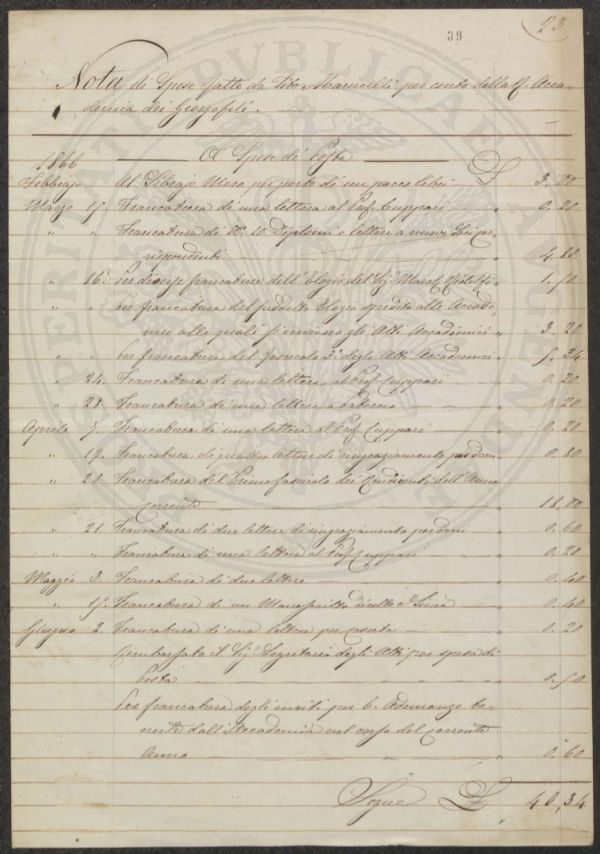 39
23
Nota di Spese fatte da Tito Marucelli per conto della R. Acca-
demia dei Georgofili.
1866
A Spese di Posta
Febbrajo Al Librajo Moro per porto di un pacco libri £ 3,00
Marzo 15. Francatura di una lettera al Prof. Cuppari " 0.20
" " Francatura di N.º 10 Diplomi e lettere a nuovi Corris-
rispondenti " 4.80
" 16. per diverse francature dell'Elogio del Sig. March. Ridolfi " 1.50
" " per francatura del suddetto Elogio spedito alle Accade-
mie alle quali s'inviano gli Atti Accademici " 3.20
" " per francatura del fascicolo 3º degli Atti Accademici " 5.24
" 24. Francatura di una lettera al Prof. Cuppari " 0.20
" 28. Francatura di una lettera " 0.20
Aprile 5. Francatura di una lettera al Prof. Cuppari " 0.20
" 19. Francatura di quattro lettere di ringraziamento per doni " 0.80
" 20. Francatura del Primo fascicolo dei Rendiconti dell'Anno
corrente " 18,00
" 21. Francatura di due lettere di ringraziamento per doni " 0.60
" " Francatura di una lettera al Prof. Cuppari " 0.20
Maggio 3. Francatura di due lettere " 0.40
" 15. Francatura di un Manoscritto diretto a " 0.40
Giugno 2. Francatura di una lettera per Caserta " 0.20
Rimborsato il Sig. Segretario degli Atti per spesa di
Posta " 0.50
Per francatura degli inviti per 6. Adunanze te-
nute dall'Accademia nel corso del corrente
Anno " 0.60
Segue £ 40,34